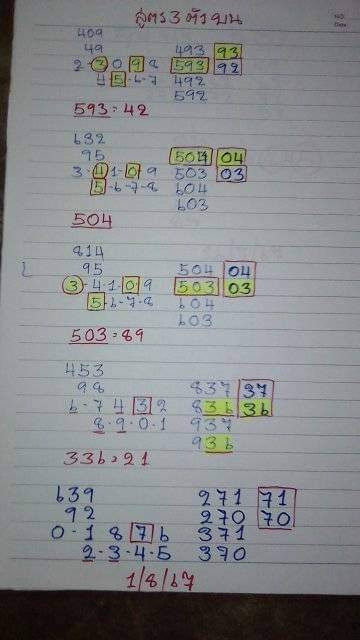 สูตร 3 ตัวบน
NO.
Date
409
49 493 93
2-3 0 9 8 593 92
4-5-6-7 492
592
593=42
632
95 504 04
3-4 1-0-9 503 03
5-6-7-8 604
603
504
814
95 504 04
3-4-1-0-9 503 03
5-6-7-8 604
603
503=89
453
98 837 37
6-7 4 3 2 836 36
8-9-0-1 937
936
336=21
639 271 71
92 270 70
0-1 8 7 6 371
2-3-4-5 370
1/8/67